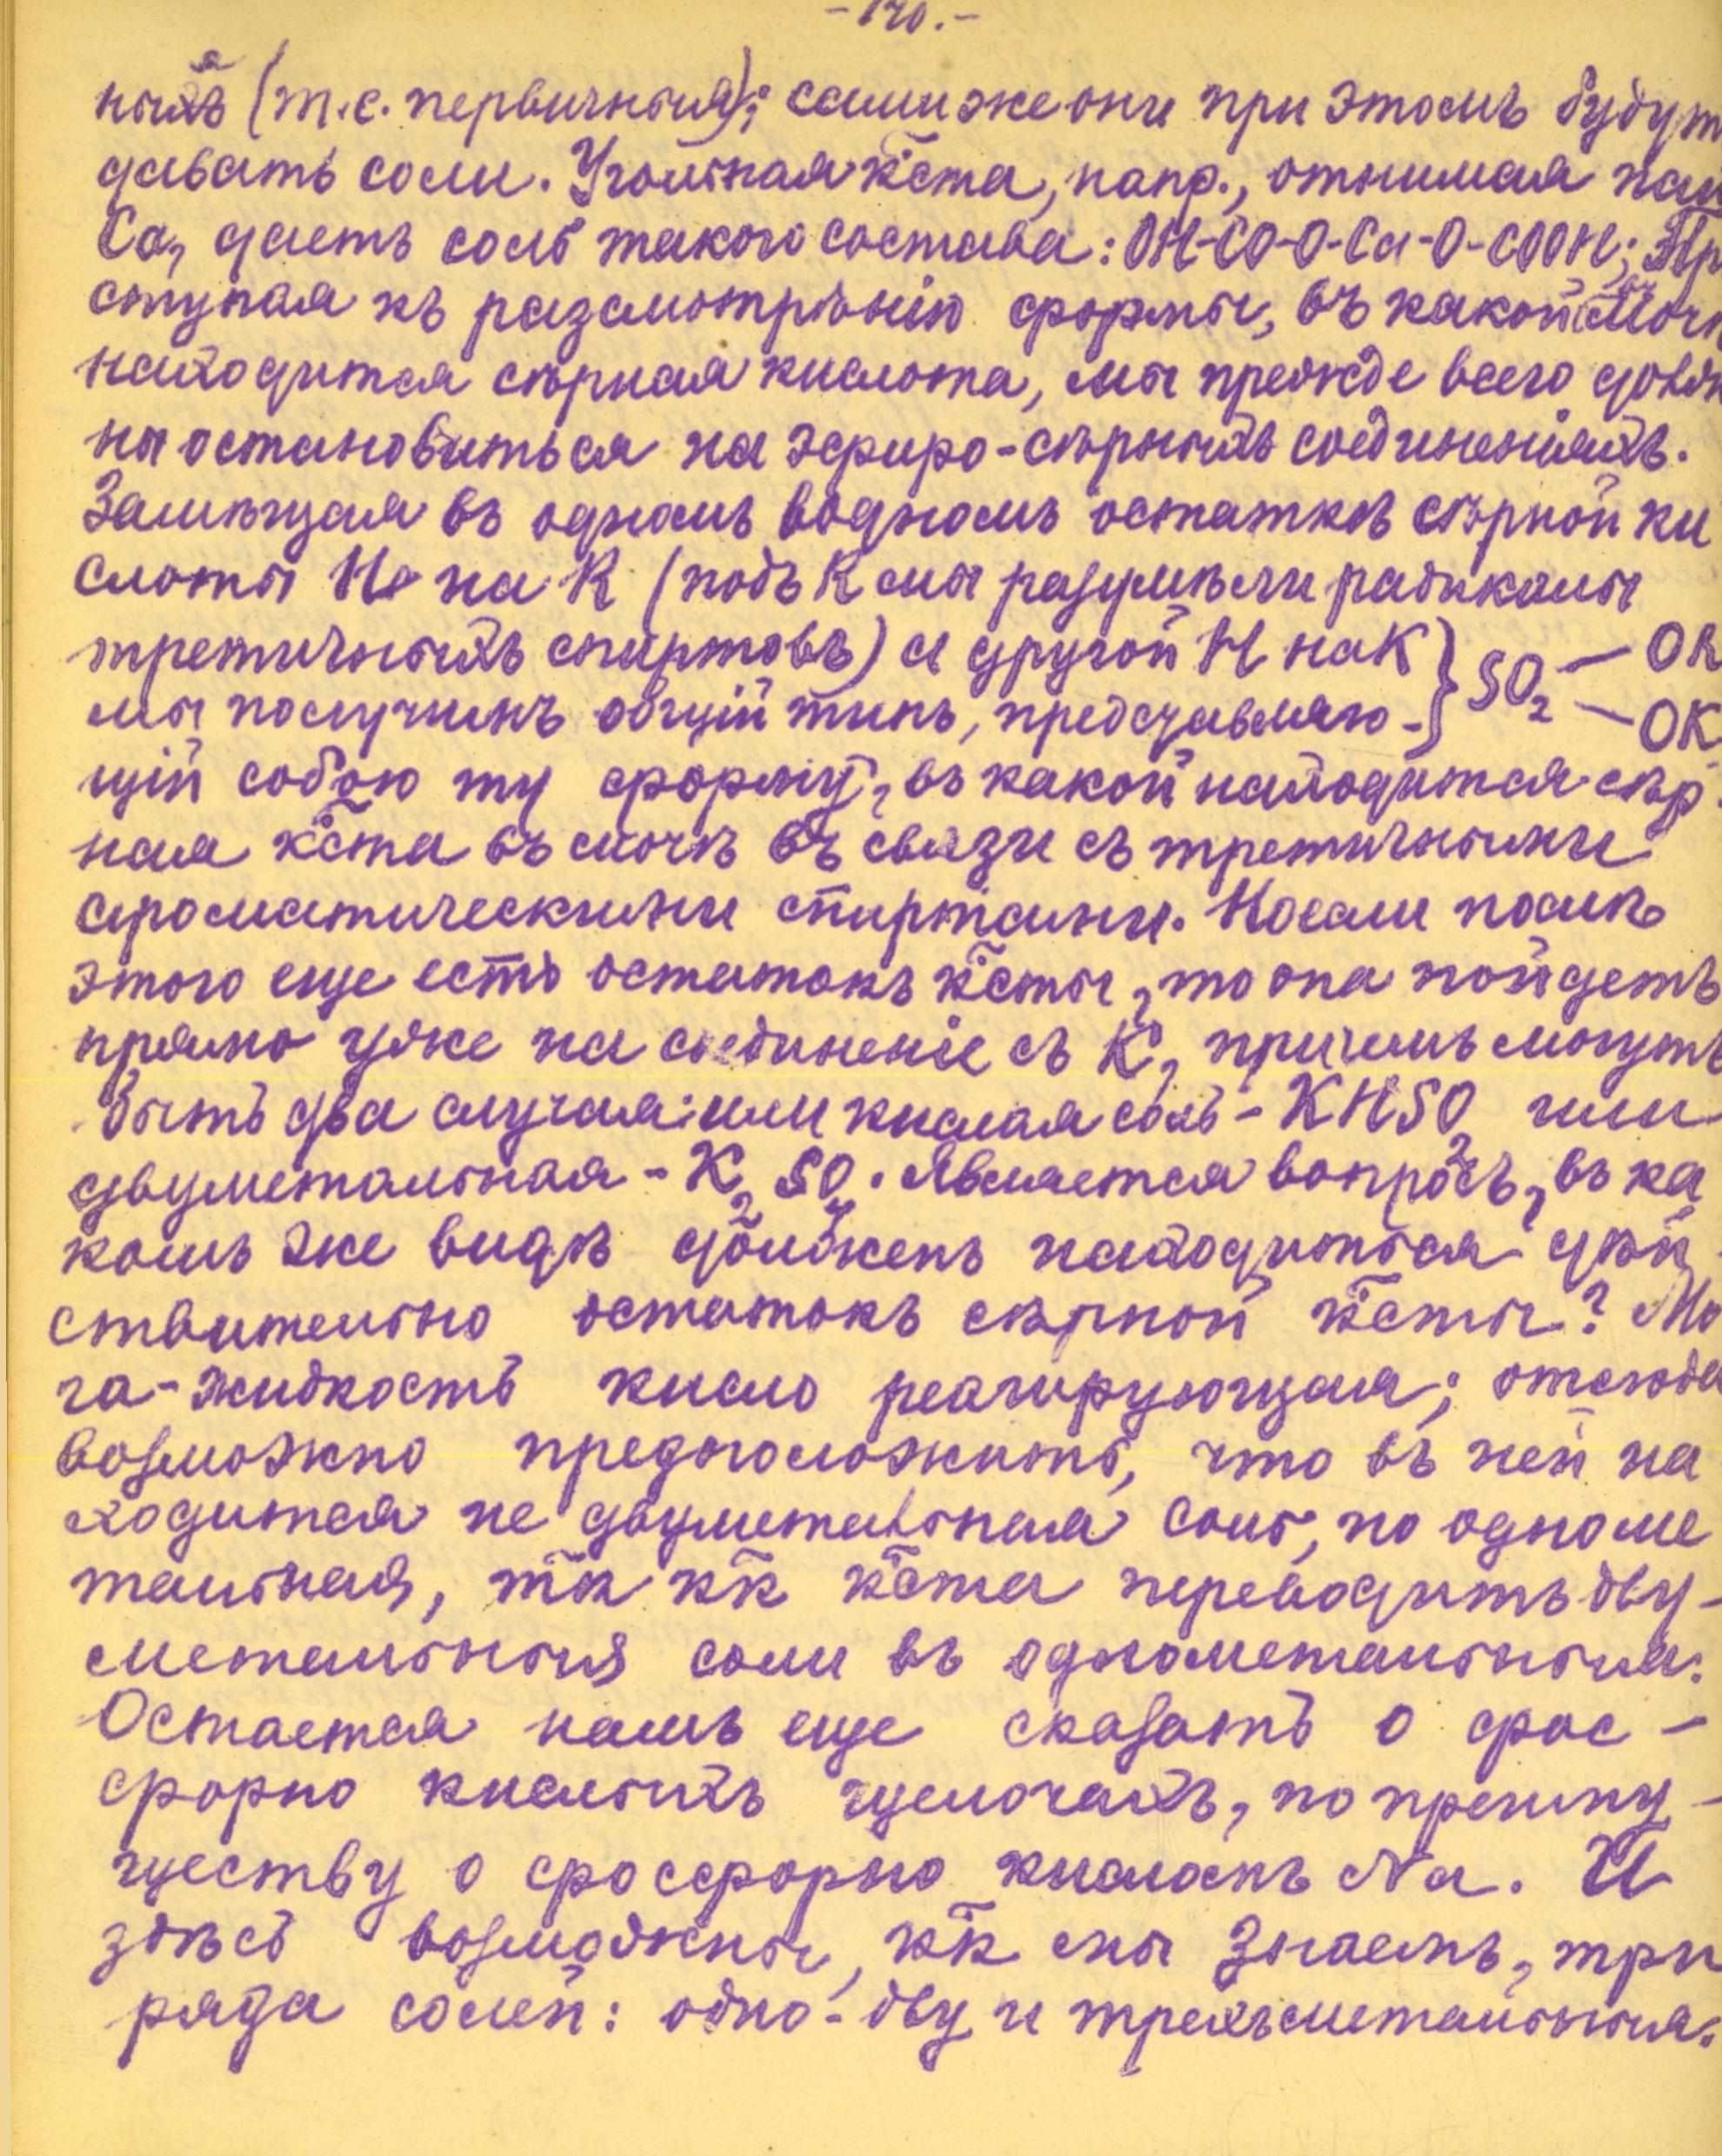 -140.-
ныя (т.е. первичныя); сами же они при этомъ будут
давать соли. Угольная к̅ста, напр., отнимая
Са, даетъ соль такого состава: ОН-СО-О-Са-О-СООН; Пр
ступая къ разсмотрѣнію формы, въ какой въ мочѣ
находится сѣрная кислота, мы прежде всего долж
ны остановиться на эфиро-сѣрныхъ соединеніяхъ.
Замѣщая въ одномъ водномъ остаткѣ сѣрной ки
слоты Н на R (подъ R мы разумѣли радикалы
третичныхъ спиртовъ) а другой Н на К } SO2 — OR
мы получимъ общій типъ, представляю- } — OK
щій собою ту форму, въ какой находится сѣр.
ная к̅ста въ мочѣ въ связи съ третичными
ароматическими спиртами. Но если послѣ
этого еще есть остатокъ к̅сты, то она пойдетъ
прямо уже на соединеніе съ К, причемъ могутъ
быть два случая: или кислая соль - KHSO или
двуметальная - K2SO4. Является вопросъ, въ ка
комъ же видѣ долженъ находиться дѣй
ствительно остатокъ сѣрной к̅сты? Мо
ча - жидкость кисло реагирующая; отсюда
возможно предположить, что въ ней на
ходится не двуметальная соль, но одноме
тальная, т̅к к̅к к̅ста переводитъ дву-
метальныя соли въ однометальныя.
Остается намъ еще сказать о фос-
форно кислыхъ щелочахъ, по преиму-
ществу о фосфорно кисломъ Na. И
здѣсь возможны, к̅к мы знаемъ, три
ряда солей: одно- дву и трехъметальныя.